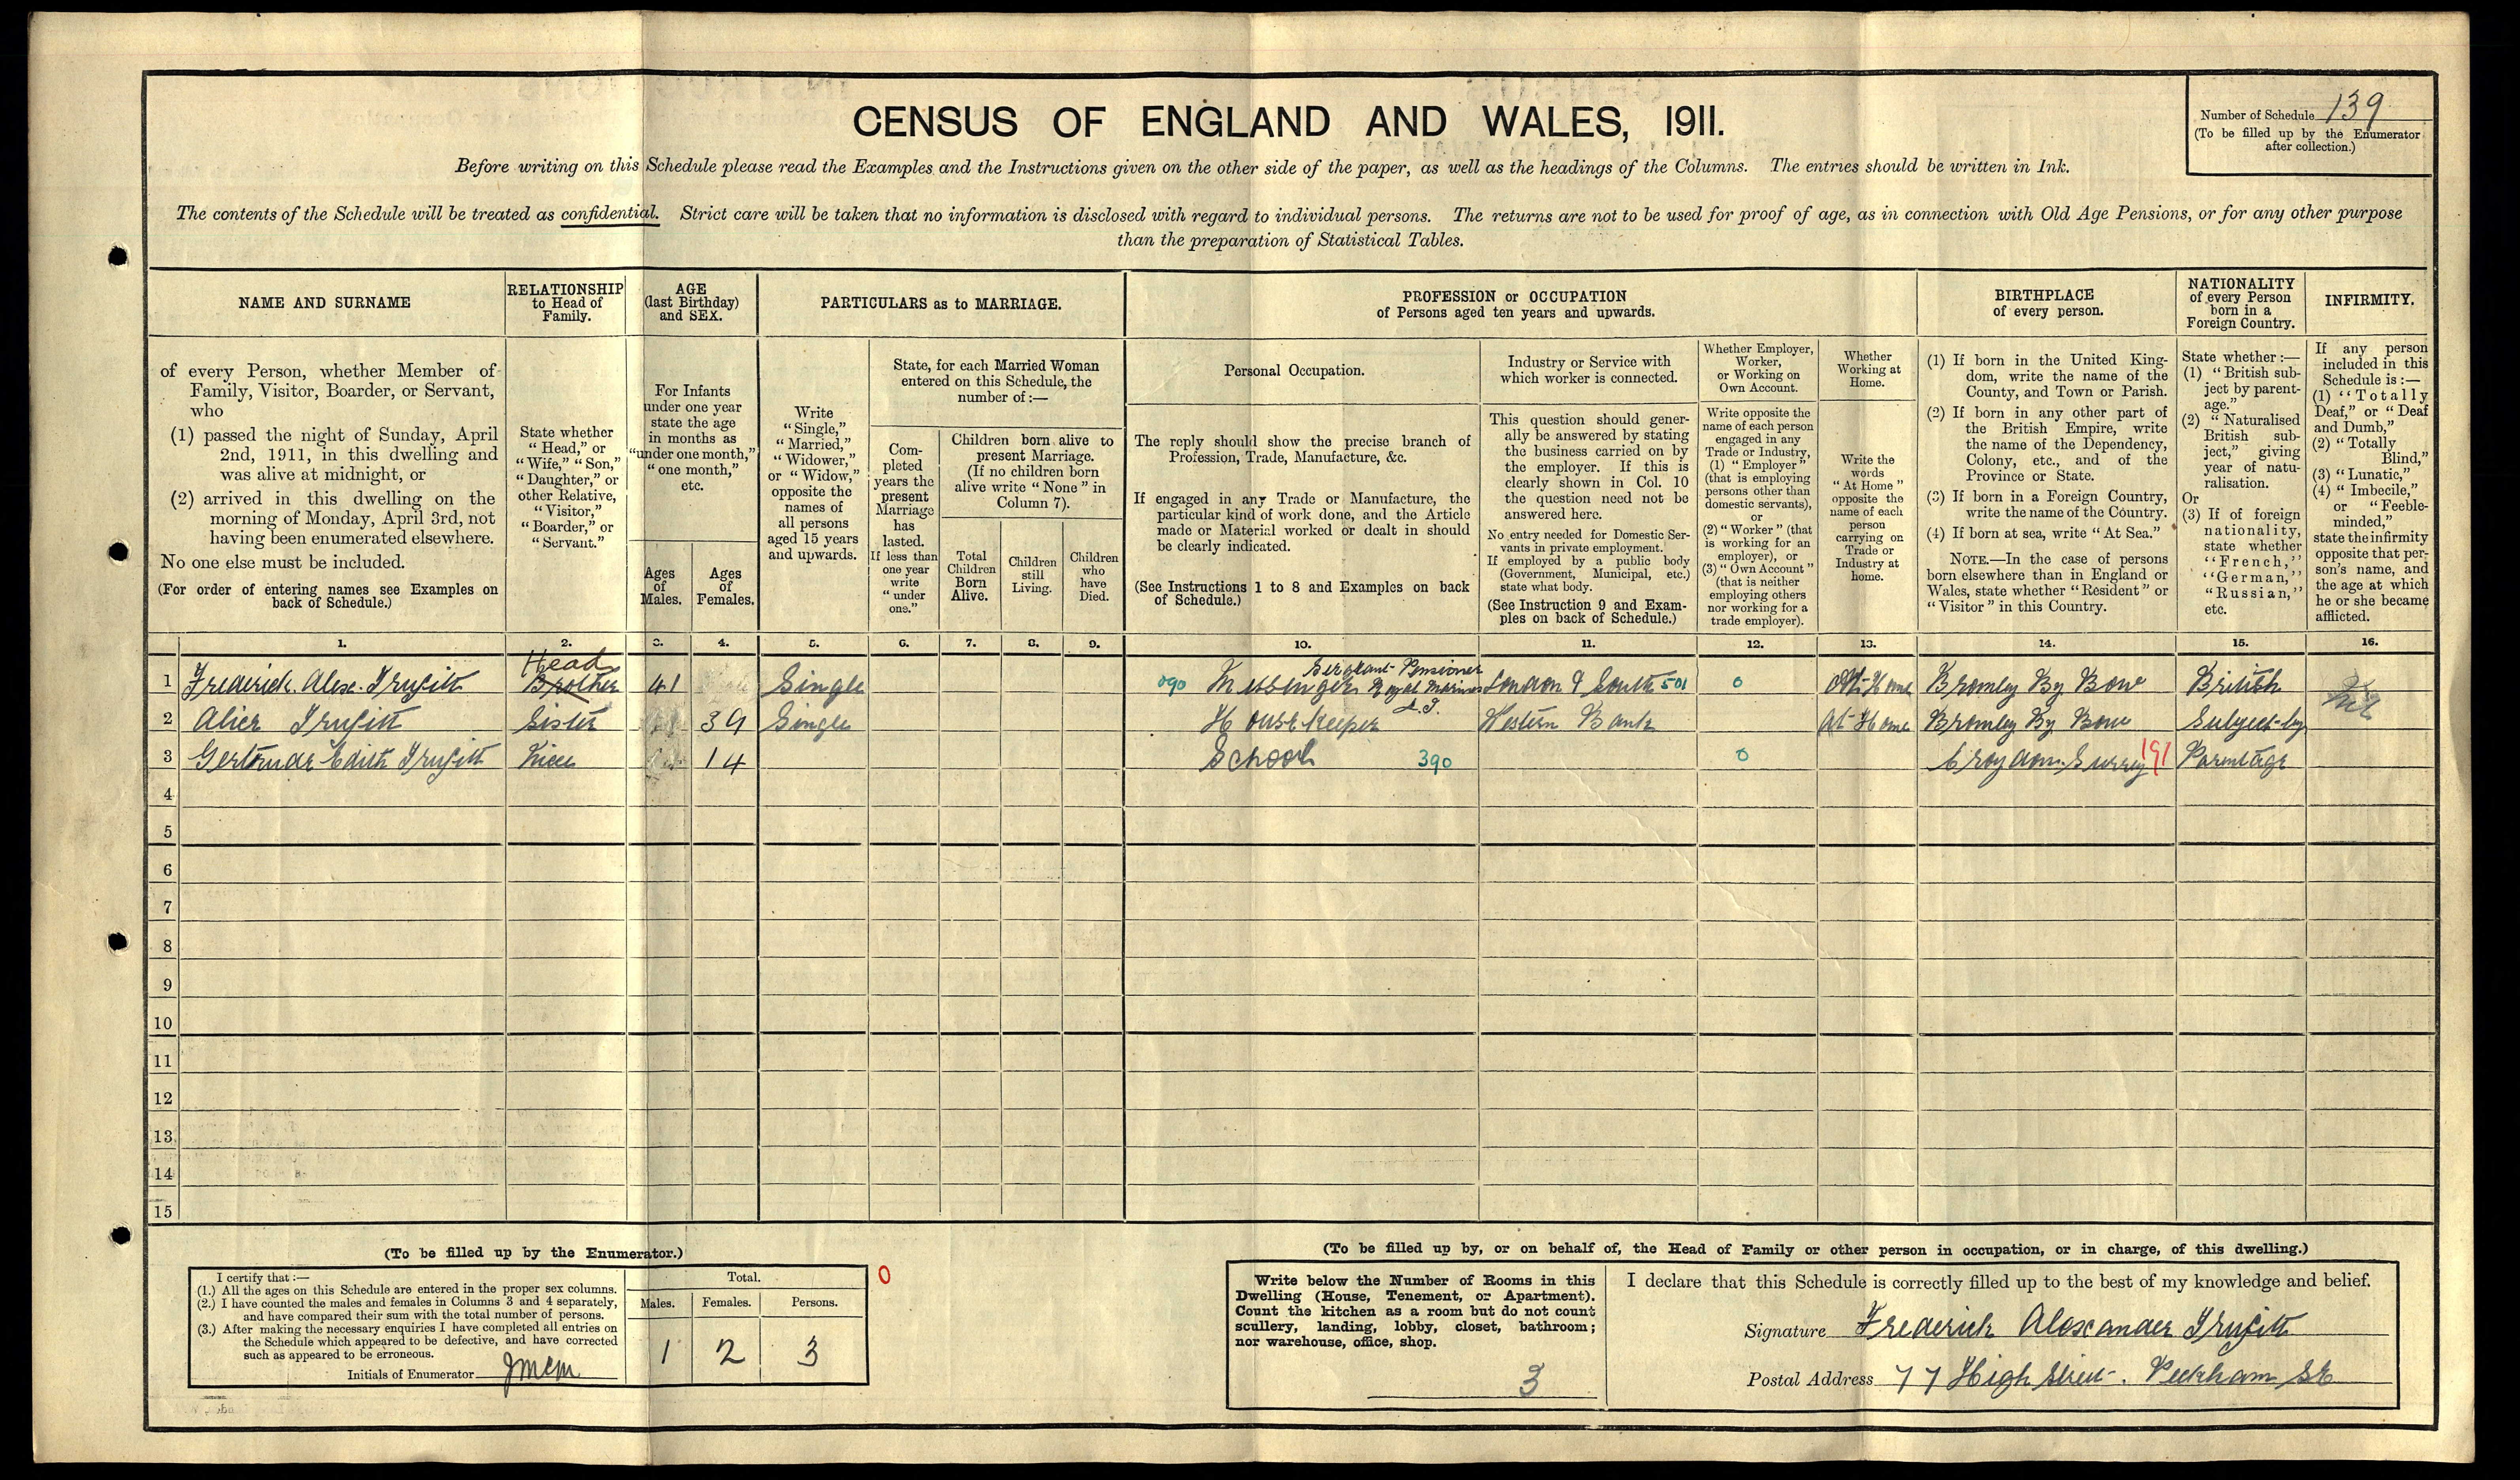 CENSUS OF ENGLAND AND WALES, 1911.
Number of Schedule 139
(To be filled up by the Enumerator
after collection.)
Before writing on this Schedule please read the Examples and the Instructions given on the other side of the paper, as well as the headings of the Columns. The entries should be written in Ink.
The contents of the Schedule will be treated as confidential. Strict care will be taken that no information is disclosed with regard to individual persons. The returns are not to be used for proof of age, as in connection with Old Age Pensions, or for any other purpose
than the preparation of Statistical Tables.
NAME AND SURNAME
of every Person, whether Member of
Family, Visitor, Boarder, or Servant,
who
(1) passed the night of Sunday, April
2nd, 1911, in this dwelling and
was alive at midnight, or
(2) arrived in this dwelling on the
morning of Monday, April 3rd, not
having been enumerated elsewhere.
No one else must be included.
(For order of entering names see Examples on
back of Schedule.)
RELATIONSHIP
to Head of
Family.
State whether
"Head," or
"Wife," "Son,"
"Daughter," or
other Relative,
"Visitor,"
"Boarder," or
"Servant."
AGE
(last Birthday)
and SEX.
For Infants
under one year
state the age
in months as
"under one month,"
"one month,"
etc.
Ages
of
Males.
Ages
of
Females.
PARTICULARS as to MARRIAGE.
Write
"Single,"
"Married,"
"Widower,"
or "Widow,"
opposite the
names of
all persons
aged 15 years
and upwards.
State, for each Married Woman
entered on this Schedule, the
number of:—
Com-
pleted
years the
present
Marriage
has
lasted.
If less than
one year
write
"under
one."
Children born alive to
present Marriage.
(If no children born
alive write "None" in
Column 7).
Total
Children
Born
Alive.
Children
still
Living.
Children
who
have
Died.
PROFESSION or OCCUPATION
of Persons aged ten years and upwards.
Personal Occupation.
The reply should show the precise branch of
Profession, Trade, Manufacture, &c.
If engaged in any Trade or Manufacture, the
particular kind of work done, and the Article
made or Material worked or dealt in should
be clearly indicated.
(See Instructions 1 to 8 and Examples on back
of Schedule.)
Industry or Service with
which worker is connected.
This question should gener-
ally be answered by stating
the business carried on by
the employer. If this is
clearly shown in Col. 10
the question need not be
answered here.
No entry needed for Domestic Ser-
vants in private employment.
If employed by a public body
(Government, Municipal, etc.)
state what body.
(See Instruction 9 and Exam-
ples on back of Schedule.)
Whether Employer,
Worker,
or Working on
Own Account.
Write opposite the
name of each person
engaged in any
Trade or Industry,
(1) "Employer"
(that is employing
persons other than
domestic servants),
or
(2) "Worker" (that
is working for an
employer), or
(3) "Own Account"
(that is neither
employing others
nor working for a
trade employer).
Whether
Working at
Home.
Write the
words
"At Home"
opposite the
name of each
person
carrying on
Trade or
Industry at
home.
BIRTHPLACE
of every person.
(1) If born in the United King-
dom, write the name of the
County, and Town or Parish.
(2) If born in any other part of
the British Empire, write
the name of the Dependency,
Colony, etc., and of the
Province or State.
(3) If born in a Foreign Country,
write the name of the Country.
(4) If born at sea, write "At Sea."
NOTE.—In the case of persons
born elsewhere than in England or
Wales, state whether "Resident" or
"Visitor" in this Country.
NATIONALITY
of every Person
born in a
Foreign Country.
State whether:—
(1) "British sub-
ject by parent-
age."
(2) "Naturalised
British sub-
ject," giving
year of natu-
ralisation.
Or
(3) If of foreign
nationality,
state whether
"French,"
"German,"
"Russian,"
etc.
INFIRMITY.
If any person
included in this
Schedule is:—
(1) "Totally
Deaf," or "Deaf
and Dumb,"
(2) "Totally
Blind,"
(3) "Lunatic,"
(4) "Imbecile,"
or "Feeble-
minded,"
state the infirmity
opposite that per-
son's name, and
the age at which
he or she became
afflicted.
1. 2. 3. 4. 5. 6. 7. 8. 9. 10. 11. 12. 13. 14. 15. 16.
Head
Sergeant-Pensioner
1 Frederick. Alex. Trufitt Brother 41 Single 090 Messenger Royal Marines London & South 501 0 At-Home Bromley By Bow British
2 Alice Trufitt Sister 39 Single House Keeper Western Bank At-Home Bromley By Bow Subject-by
3 Gertrude Edith Trufitt Niece 14 School 390 0 Croydon. Surrey 191 Parentage
4
5
6
7
8
9
10
11
12
13
14
15
(To be filled up by the Enumerator.)
I certify that:—
(1.) All the ages on this Schedule are entered in the proper sex columns.
(2.) I have counted the males and females in Columns 3 and 4 separately,
and have compared their sum with the total number of persons.
(3.) After making the necessary enquiries I have completed all entries on
the Schedule which appeared to be defective, and have corrected
such as appeared to be erroneous.
Initials of Enumerator JMCM
Total.
Males. Females. Persons.
1 2 3
0
(To be filled up by, or on behalf of, the Head of Family or other person in occupation, or in charge, of this dwelling.)
Write below the Number of Rooms in this
Dwelling (House, Tenement, or Apartment).
Count the kitchen as a room but do not count
scullery, landing, lobby, closet, bathroom;
nor warehouse, office, shop.
3
I declare that this Schedule is correctly filled up to the best of my knowledge and belief.
Signature Frederick Alexander Trufitt
Postal Address 77 High Street. Peckham SE